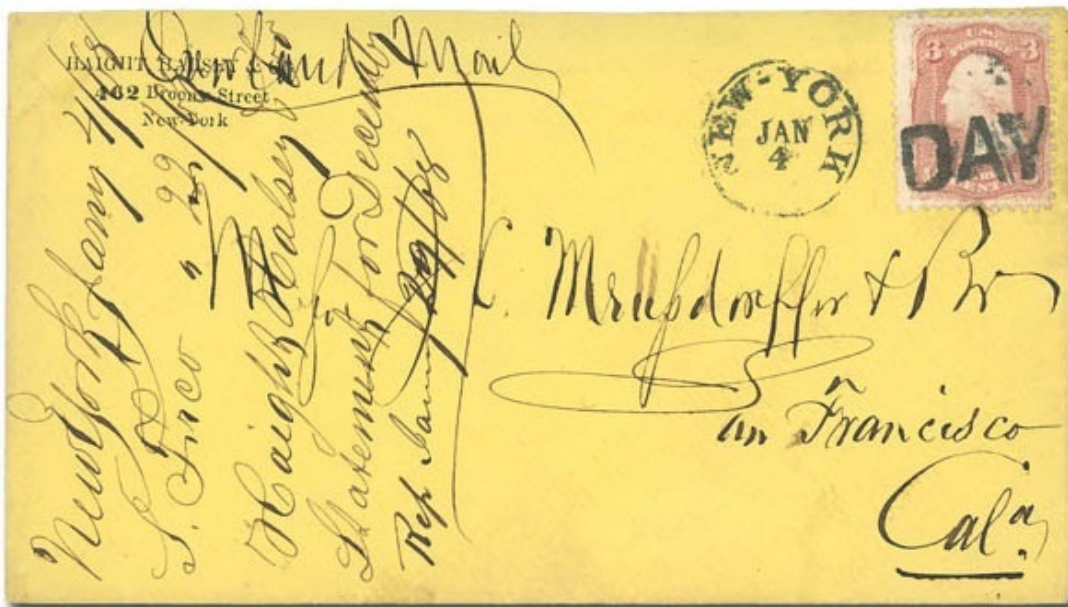 HAIGHT HALSEY & Co
462 Broome Street
New-York
Overland Mail
NEW-YORK
JAN
4
3 U.S. POSTAGE 3
DAY
Messrs
C. Mrussdorffer & Bro
San Francisco
Cala
New York Jany 4/68
S. Frco " 29/68
Haight Halsey
Statement for December
Rep Jan 29/68